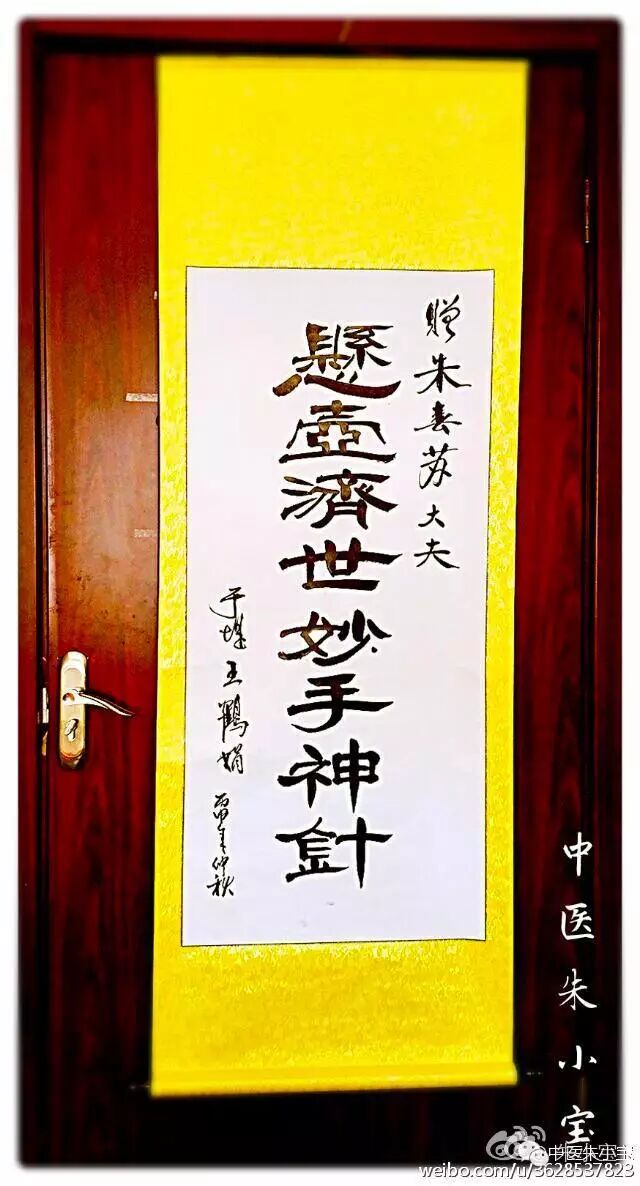 贈朱春苏大夫
懸壺濟世妙手神針
于堞 王鶴娟 丙申年仲秋
中医朱小宝
中医朱小宝
weibo.com/u/3628537823